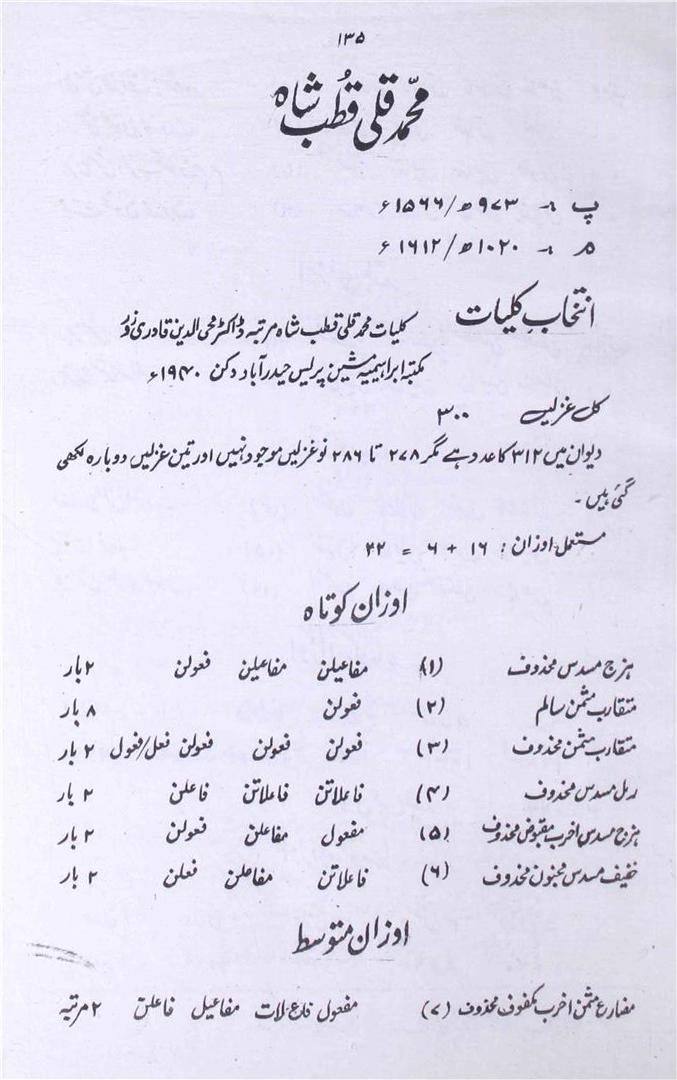 ۱۳۵
محمّد قلی قُطب شاہ
پ ۔ ۹۷۳ھ/۱۵۶۶ء
م ۔ ۱۰۲۰ھ/۱۶۱۲ء
انتخاب کلیات کلیات محمد قلی قطب شاہ مرتبہ ڈاکٹر محی الدین قادری زورؔ
مکتبہ ابراہیمیہ مشین پریس حیدرآباد دکن ۱۹۴۰ء
کل غزلیں ۳۰۰
دیوان میں ۳۱۲ کا عدد ہے مگر ۲۷۸ تا ۲۸۶ نو غزلیں موجود نہیں اور تین غزلیں دوبارہ لکھی
گئی ہیں۔
مستعمل اوزان : ۱۶ + ۶ = ۲۲
اوزان کوتاہ
ہزج مسدس محذوف (۱) مفاعیلن مفاعیلن فعولن ۲ بار
متقارب مثمن سالم (۲) فعولن ۸ بار
متقارب مثمن محذوف (۳) فعولن فعولن فعولن فعل/فعول ۲ بار
رمل مسدس محذوف (۴) فاعلاتن فاعلاتن فاعلن ۲ بار
ہزج مسدس اخرب مقبوض محذوف (۵) مفعول مفاعلن فعولن ۲ بار
خفیف مسدس مخبون محذوف (۶) فاعلاتن مفاعلن فعلن ۲ بار
اوزان متوسط
مضارع مثمن اخرب مکفوف محذوف (۷) مفعول فاع لات مفاعیل فاعلن ۲ مرتبہ